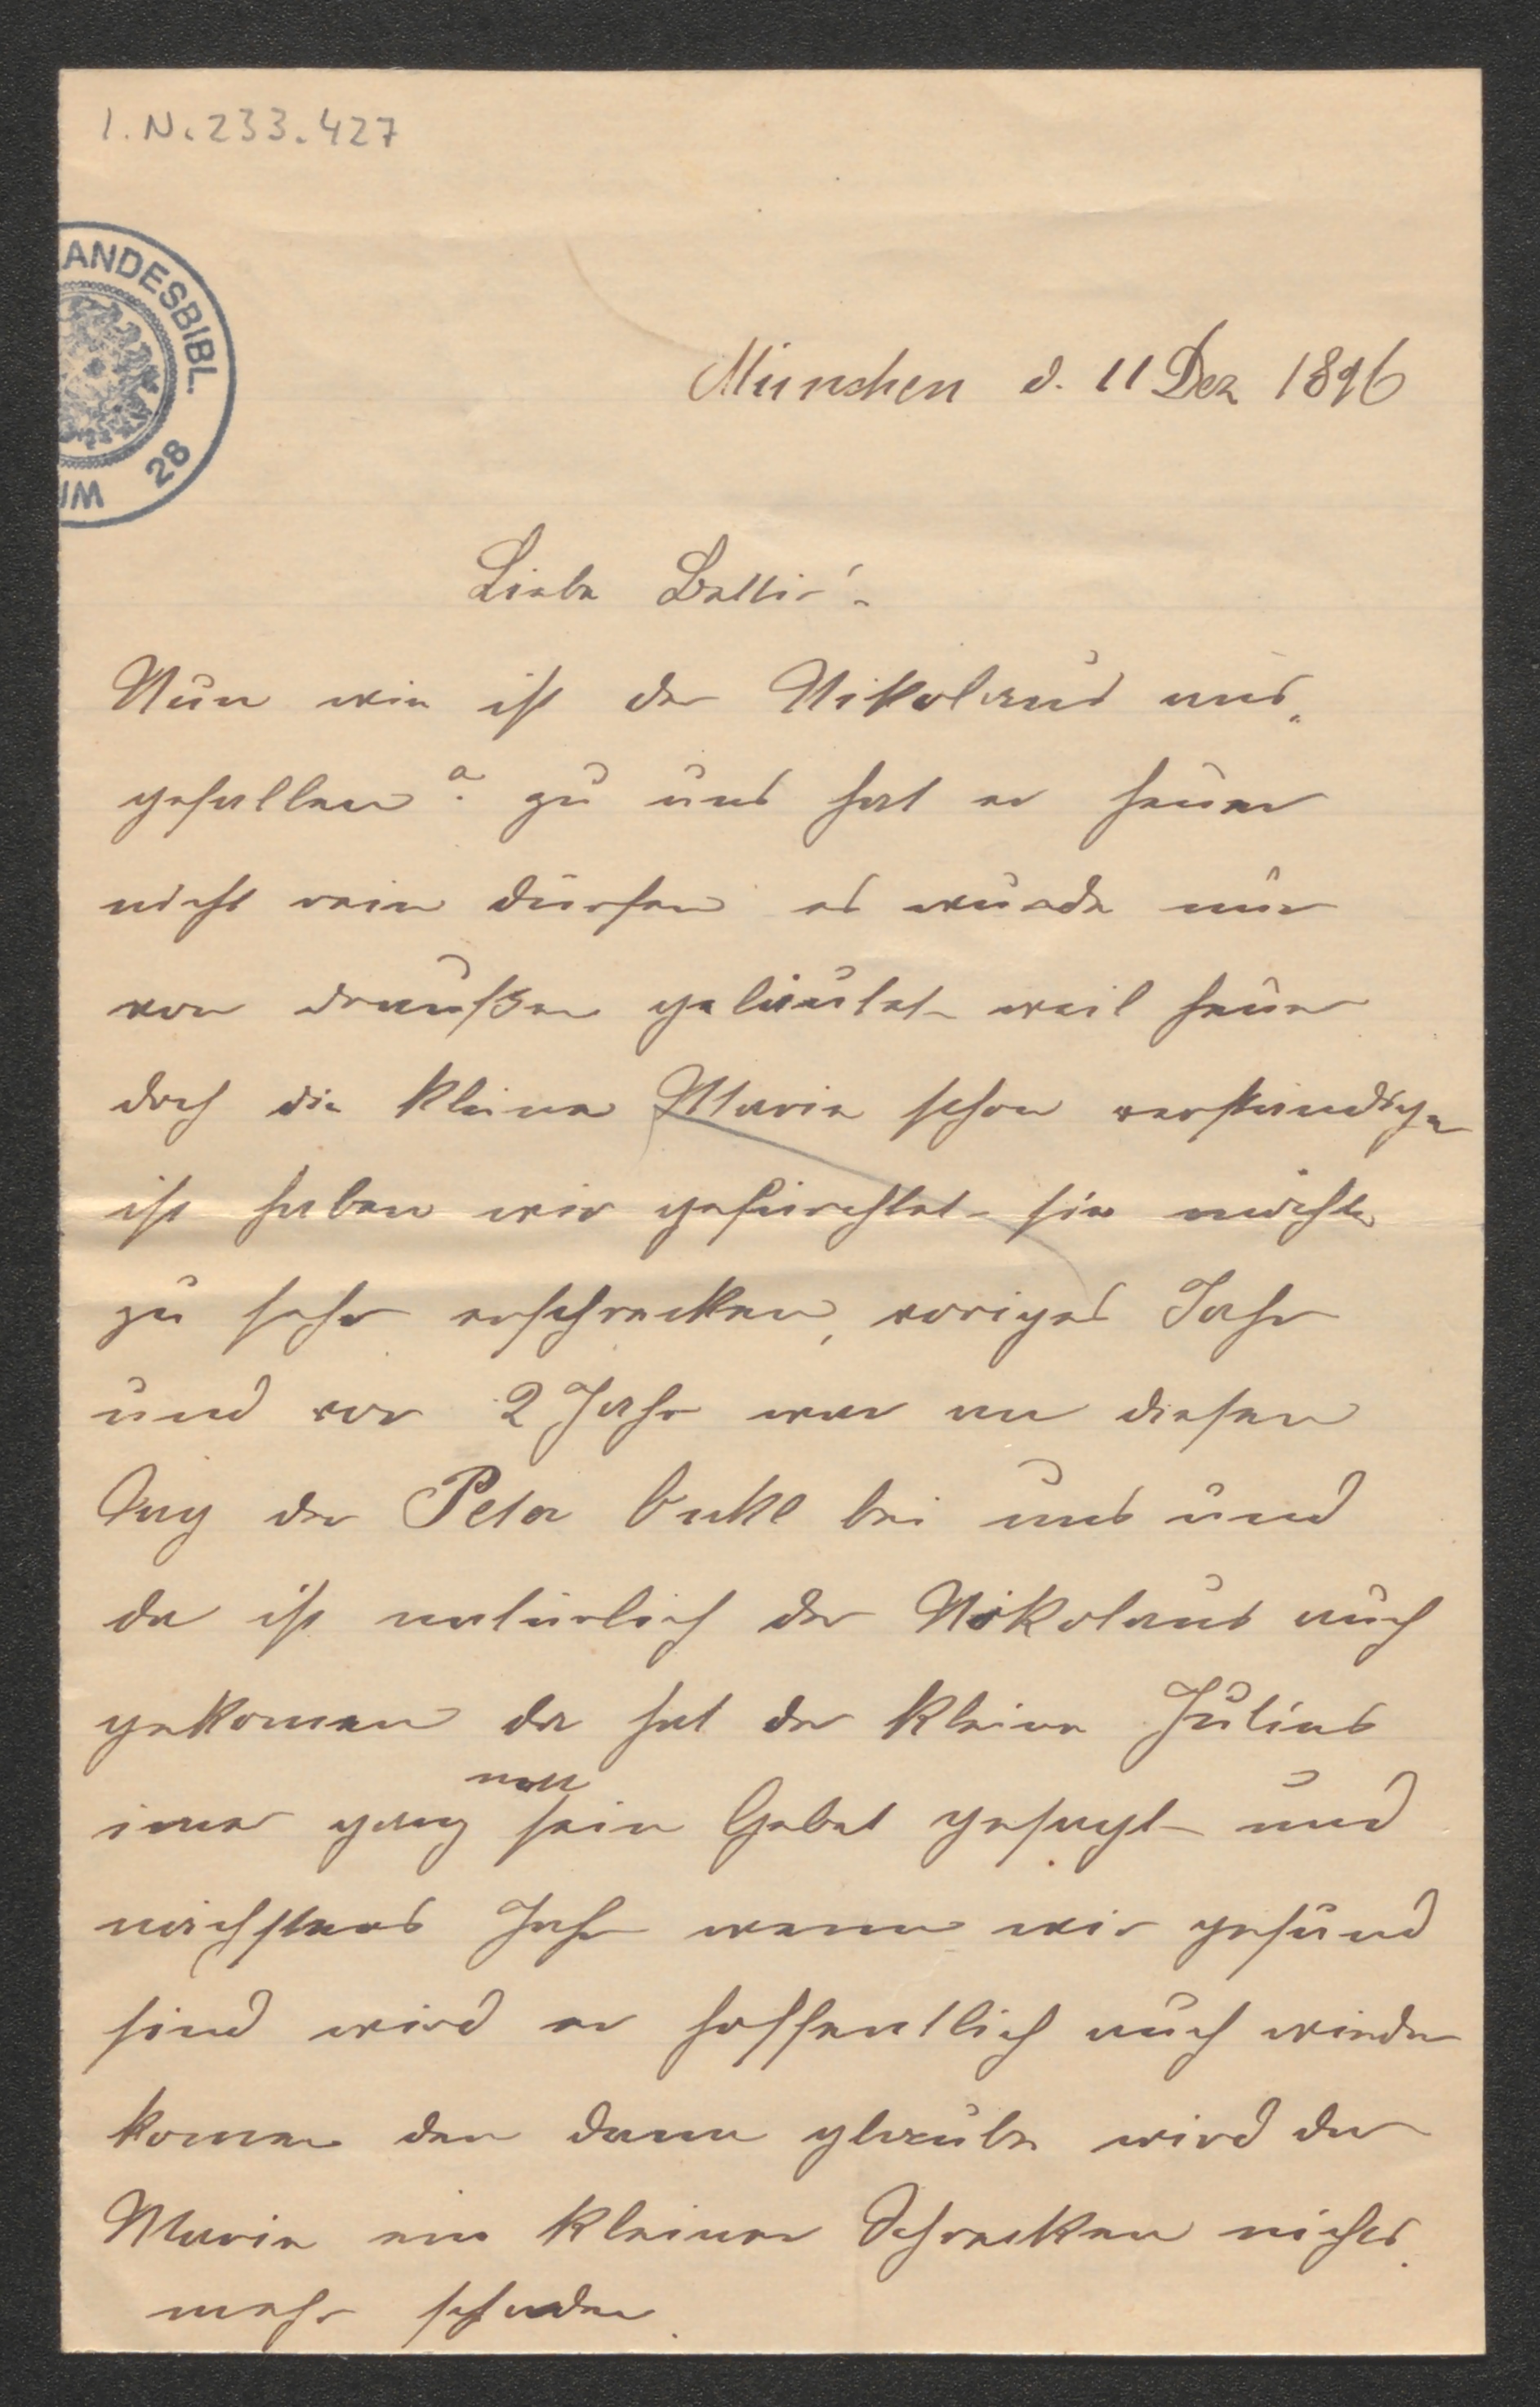 I.N. 233.427
ANDESBIBL.
28
WI
München d. 11 Dez 1896
Liebe Bettie!
Nun wie ist der Nikolaus aus„
gefallen? zu uns hat er heuer
nicht rein dürfen es wurde nur
von draußen geläutet weil heuer
doch die kleine Marie schon verständig
ist haben wir gefürchtet sie möchte
zu sehr erschrecken, voriges Jahr
und vor 2 Jahr war an diesen
Tag der Peter Onkl bei uns und
da ist natürlich der Nikolaus auch
gekomen da hat der kleine Julius
imer ganz nett sein Gebet gesagt und
nächstens Jahr wenn wir gesund
sind wird er hoffentlich auch wieder
komen den dann glaube wird der
Marie ein kleiner Schrecken nichts
mehr schaden.